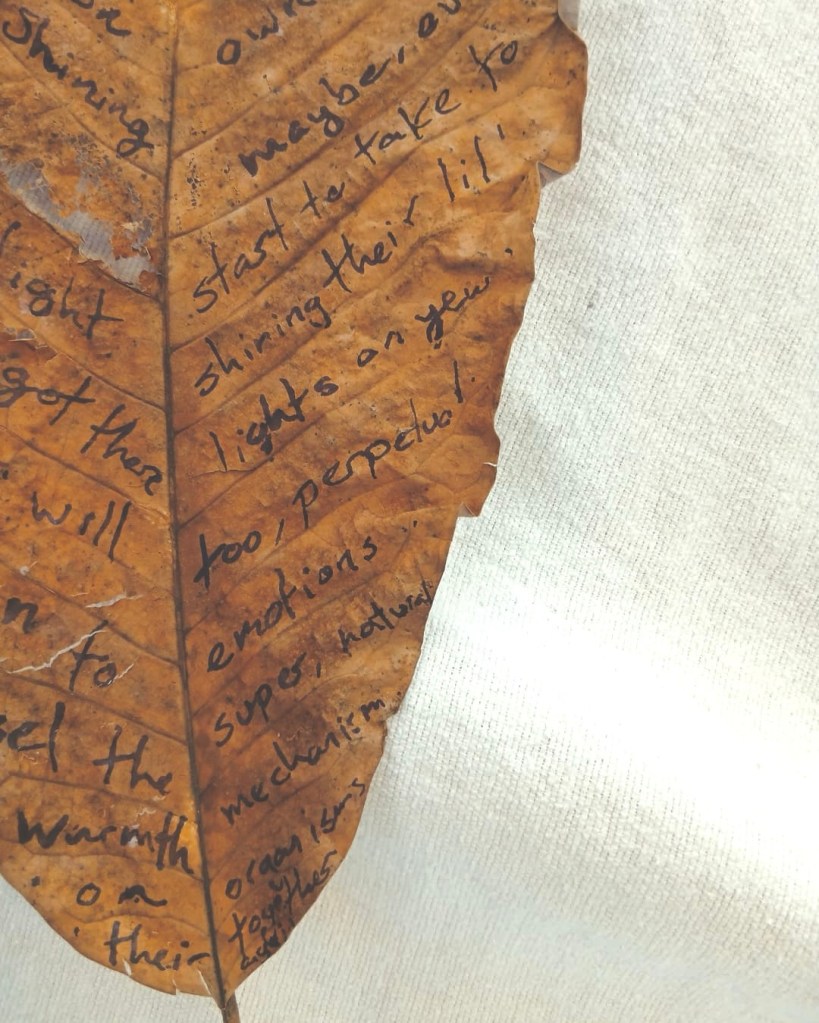 shining
light
got there
will
to
the
warmth
on
their
own
maybe,
start to take to
shining their lil'
lights on yew.
too, perpetual
emotions..
super, natural
mechanism
organisms
together